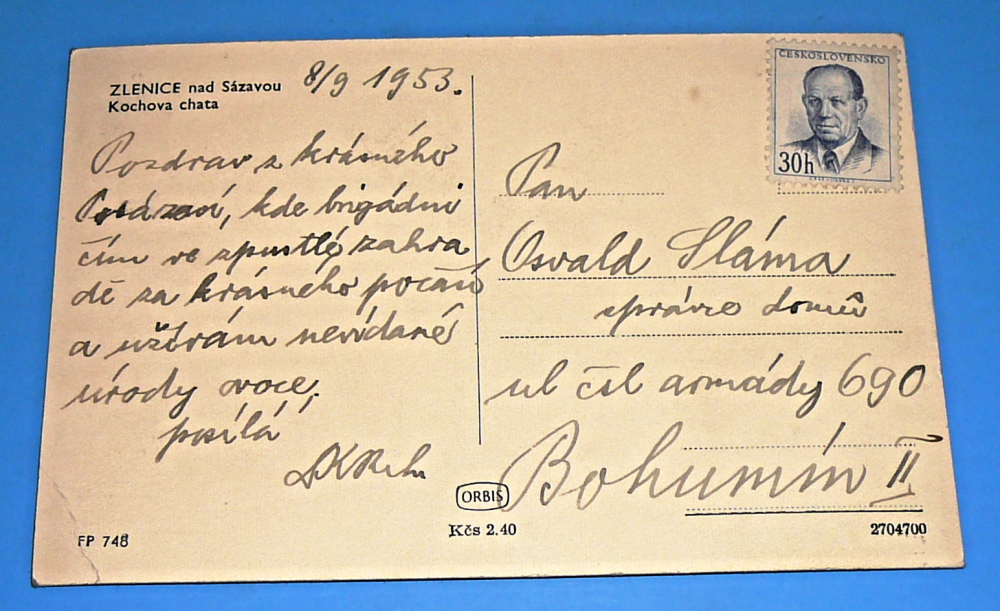 ZLENICE nad Sázavou
Kochova chata
8/9 1953.
Pozdrav z krásného
Posázaví, kde brigádni
čím ve zpustlé zahra
dě za krásného počasí
a užírám nevídané
úrody ovoce.
posílá
ČESKOSLOVENSKO
30h
Pan
Osvald Sláma
správce domů
ul čsl armády 690
Bohumín II
ORBIS
FP 748
Kčs 2.40
2704700